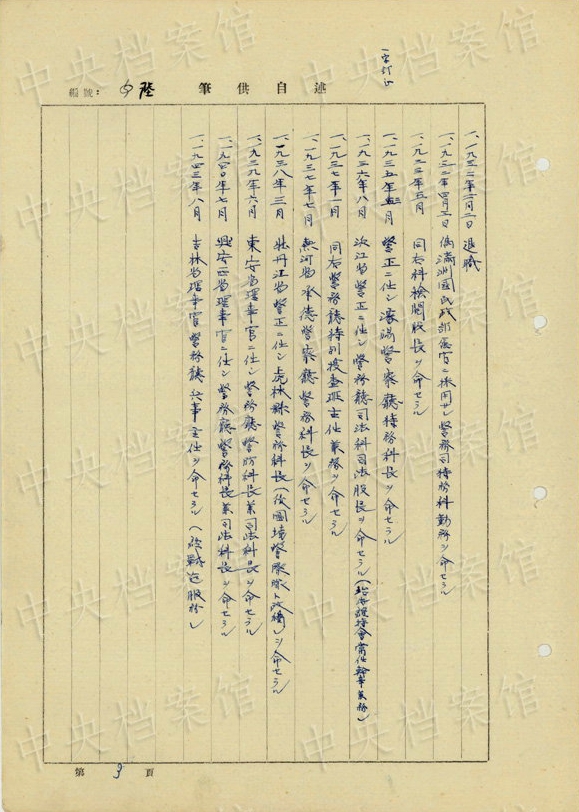 編號：
筆供自述
一、一九三二年二月二日　退職
一、一九三二年四月三日　偽満洲國民政部属官ニ採用サレ警務司特務科勤務ヲ命セラル
一、一九三三年五月　同右科檢閲股長ヲ命セラル
一、一九三五年　警正ニ任シ瀋陽警察廳特務科長ヲ命セラル
一、一九三六年八月　浜江省警正ニ任シ警務廳司法科司法股長ヲ命セラル（治安維持會常任幹事兼務）
一、一九三七年一月　同右警務廳特別捜査班主任兼務ヲ命セラル
一、一九三七年七月　熱河省承德警察廳警務科長ヲ命セラル
一、一九三八年三月　牡丹江省警正ニ任シ虎林縣警務科長（後國境警察隊ト改稱）ヲ命セラル
一、一九三九年六月　東安省理事官ニ任シ警務廳警防科長兼司法科長ヲ命セラル
一、一九四〇年七月　興安西省理事官ニ任シ警務廳警務科長兼司法科長ヲ命セラル
一、一九四三年八月　吉林省理事官警務廳兵事主任ヲ命セラル（終戰迄服務）
第 9 頁
中央档案馆